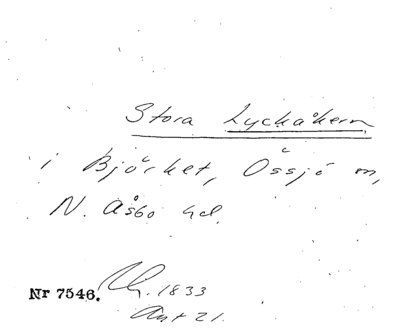 Stora Lyckåkern
i Björket, Össjö sn,
N. Åsbo hd.
Nr 7546.
1833
Akt 21.